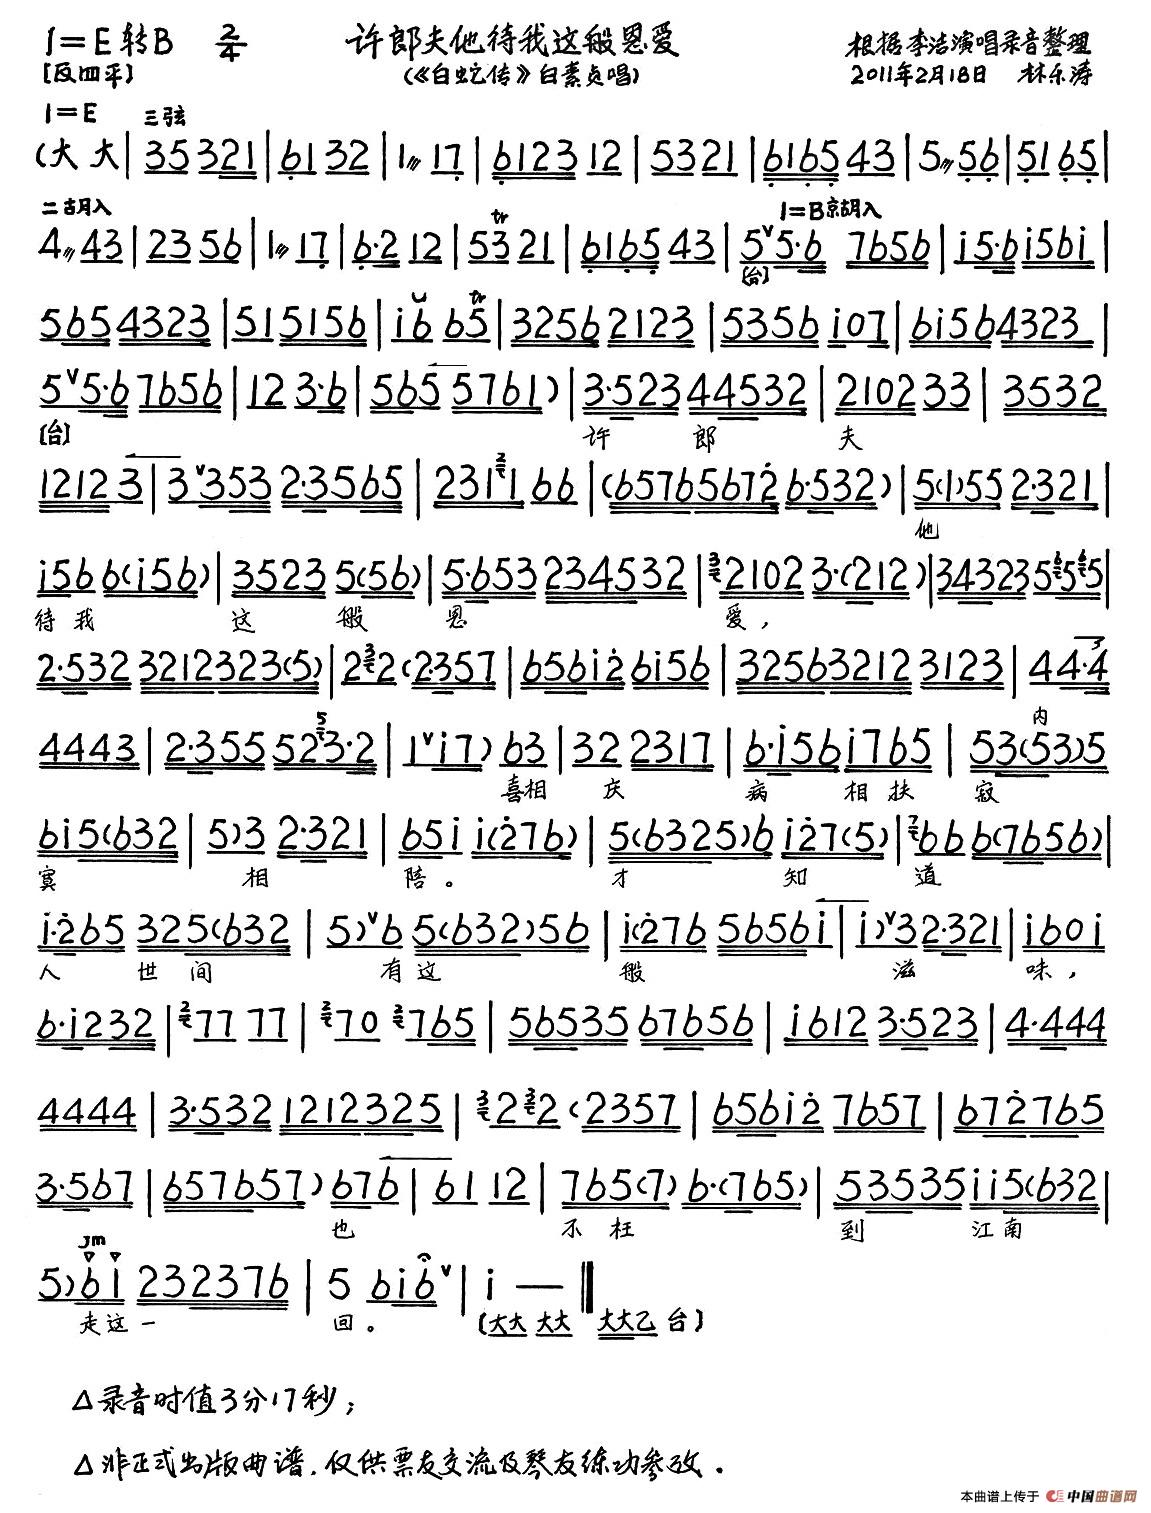 1=E 转B 2/4 许郎夫他待我这般恩爱 根据李洁演唱录音整理
[反四平] (《白蛇传》白素贞唱) 2011年2月18日 林乐涛
1=E 三弦
(大 大 | 35 321 | 61 32 | 1 17 | 6123 12 | 53 21 | 6165 43 | 5 56 | 51 65 |
二胡入 tr 1=B京胡入
4 43 | 23 56 | 1 17 | 6·2 12 | 53 21 | 6165 43 | 5ˇ5·6 7656 | i5·6 i56i |
[台]
565 4323 | 51 5156 | i6 65 | 3256 2123 | 5356 i07 | 6i56 4323 |
5ˇ5·6 7656 | 12 3·6 | 565 5761) | 3·523 44532 | 2102 33 | 3532
[台] 许 郎 夫
1212 3 | 3ˇ353 2·3565 | 231 1 66 | (65765672 6·532) | 5(1)55 2·321 |
他
i56 6(i56) | 3523 5(56) | 5·653 234532 | 2102 3·(212) | 34323 5 5 5 |
待我 这 般 恩 爱,
2·532 3212323(5) | 2 2 (2·357 | 656i2 6i56 | 32563212 3123 | 44·4
4443 | 2·355 52 3·2 | 1ˇi7) 63 | 32 2317 | 6·i56 i765 | 53(53)5
喜相 庆 病 相 扶 寂 内
6i5(632 | 5)3 2·321 | 65i i(276) | 5(6325)6 i27(5) | 66 6(7656) |
寞 相 陪。 才 知 道
i·265 325(632 | 5)ˇ6 5(632)56 | i(276 5656i | i)ˇ32·321 | i60i
人 世 间 有这 般 滋 味,
6·i232 | 77 77 | 70 765 | 56535 67656 | i612 3·523 | 4·444
4444 | 3·532 1212325 | 2 2 (2357 | 656i2 7657 | 672765
3·567 | 657657) 676 | 61 12 | 765(7) 6·(765) | 53535 ii5(632 |
也 不 枉 到 江南
5)6i 232376 | 5 6i6ˇ | i — ‖
走这一 回。 (大大 大大 大大乙 台)
△录音时值3分17秒;
△非正式出版曲谱,仅供票友交流及琴友练功参改.
本曲谱上传于 中国曲谱网